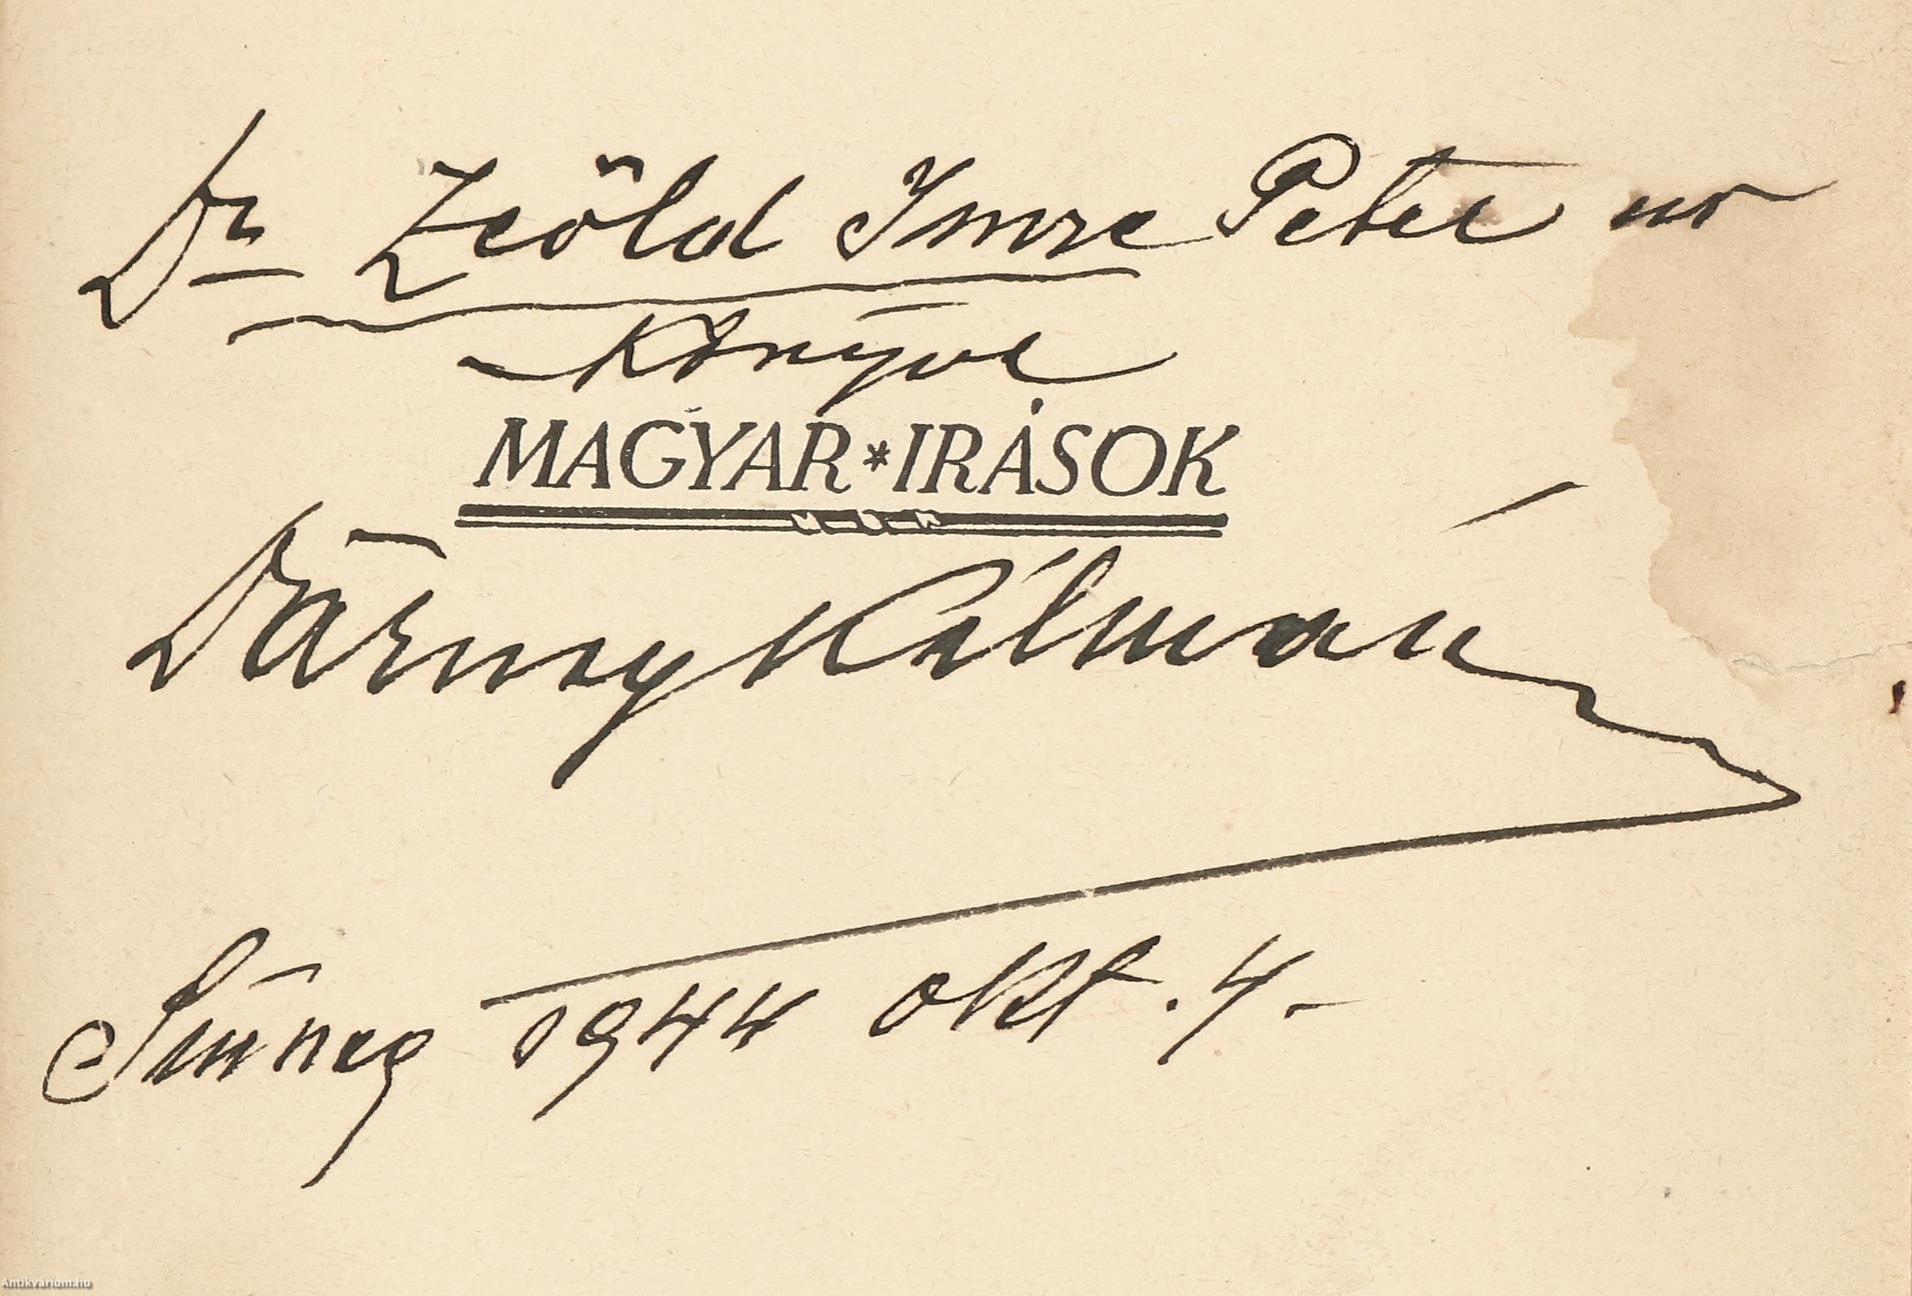 Dr Zeöld Imre Peter ur
Könyve
MAGYAR * IRÁSOK
Dárnay Kálmán
Sümeg 1944 okt. 4-
Antikvarium.hu